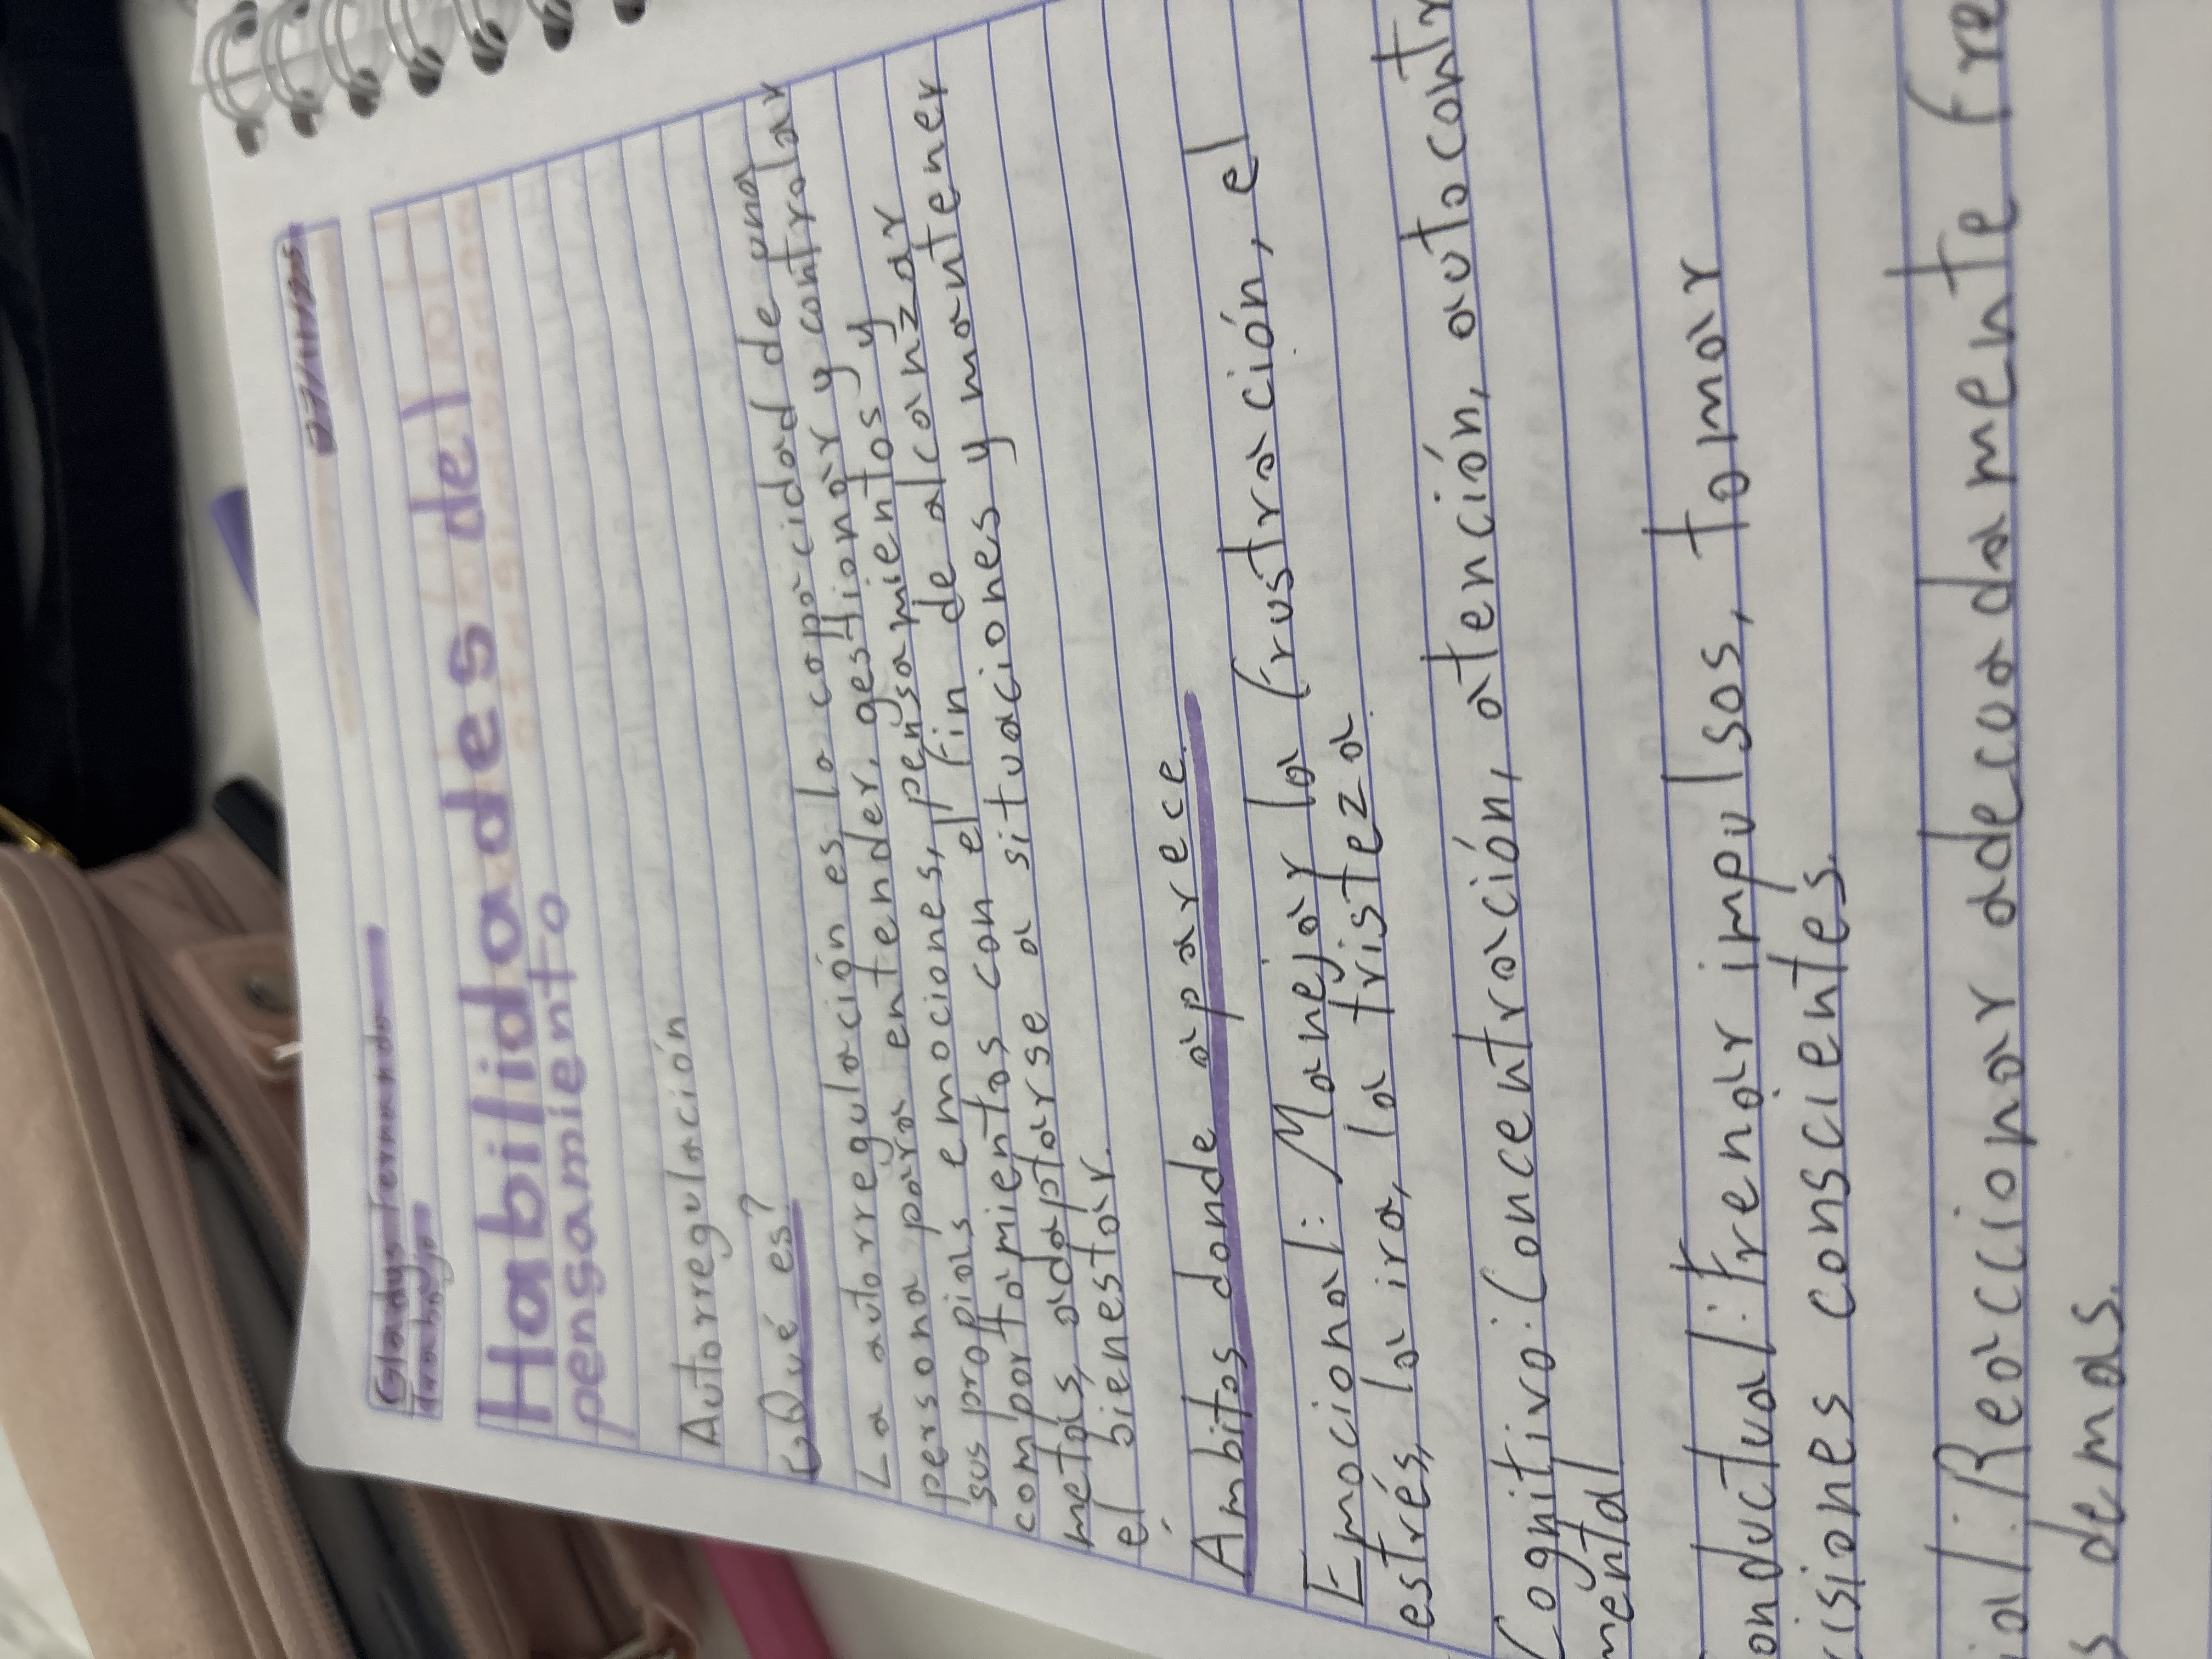 27/11/25
Gladys Fernanda
trabajo
Habilidades del
pensamiento
Autorregulación
¿Qué es?
La autorregulación es la capacidad de una
persona para entender, gestionar y controlar
sus propias emociones, pensamientos y
comportamientos con el fin de alcanzar
metas, adaptarse a situaciones y mantener
el bienestar.
Ambitos donde aparece.
Emocional: Manejar la frustración, el
estrés, la ira, la tristeza.
Cognitivo: Concentración, atención, autocontr
mental
onductual: Frenar impulsos, tomar
cisiones conscientes.
ial: Reaccionar adecuadamente fre
s demas.